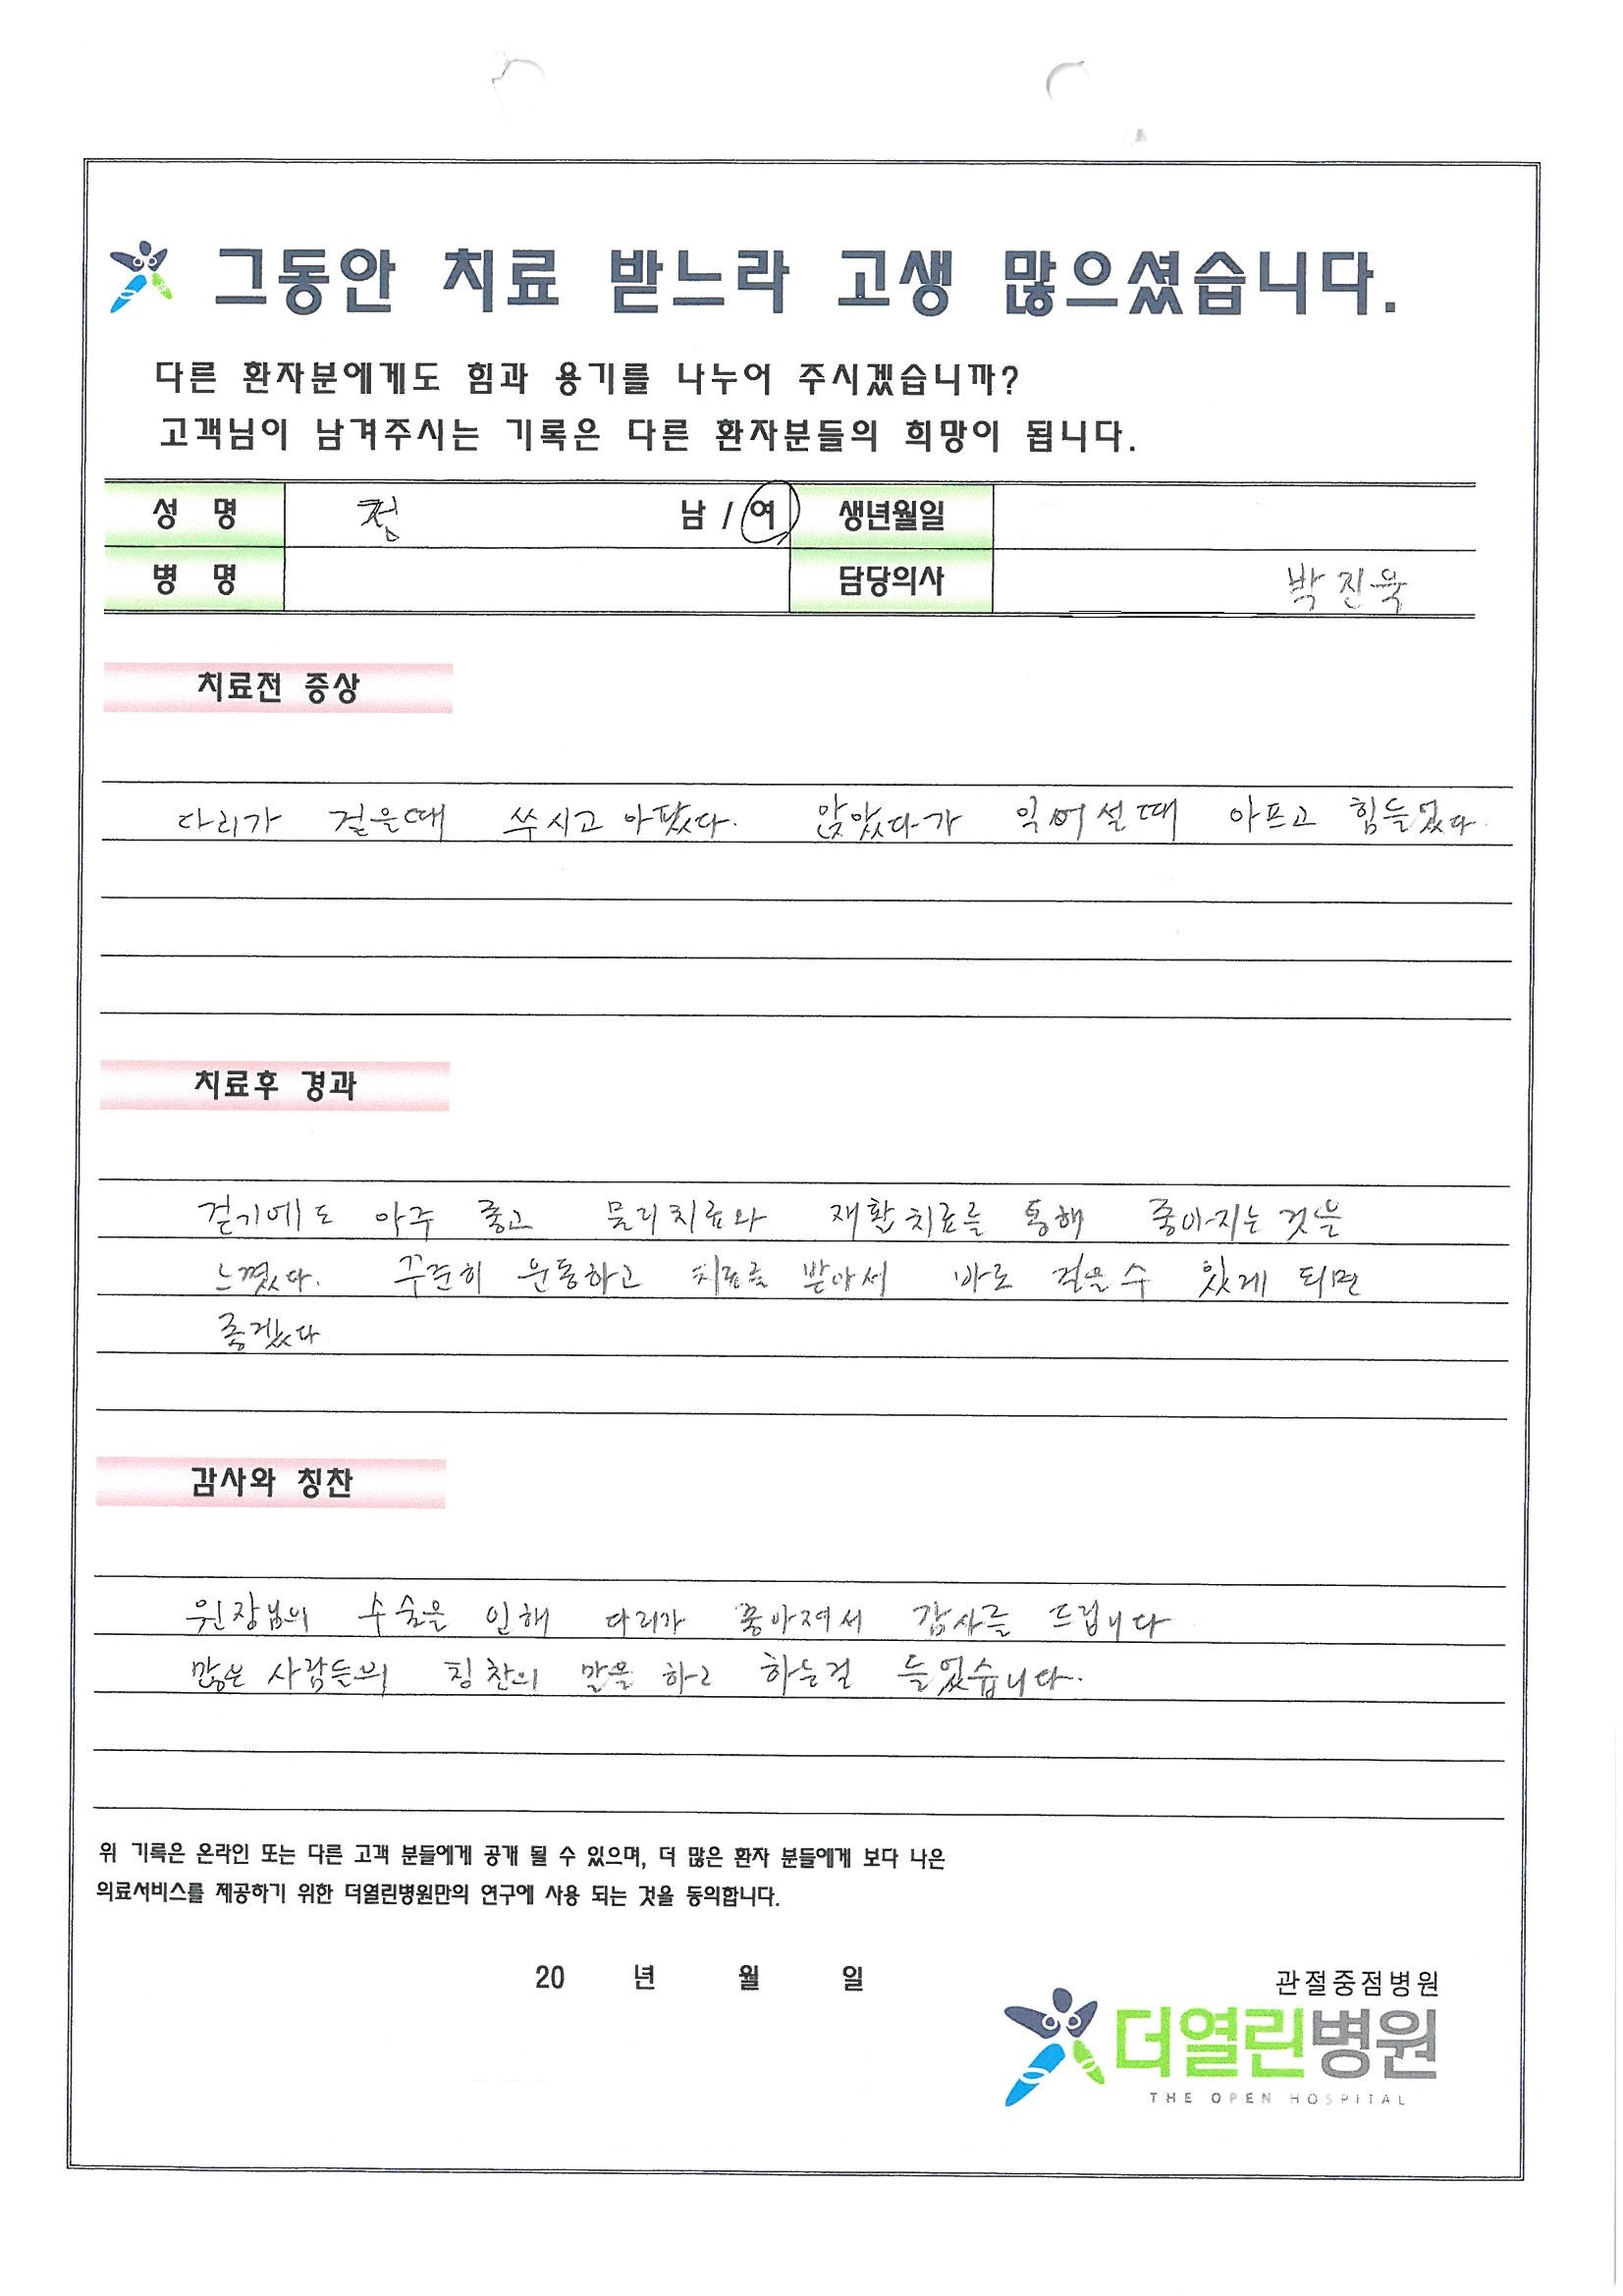 그동안 치료 받느라 고생 많으셨습니다.
다른 환자분에게도 힘과 용기를 나누어 주시겠습니까?
고객님이 남겨주시는 기록은 다른 환자분들의 희망이 됩니다.
성 명 정 남 / 여 생년월일
병 명 담당의사 박진욱
치료전 증상
다리가 걸을때 쑤시고 아팠다. 앉았다가 일어설때 아프고 힘들었다.
치료후 경과
걷기에도 아주 좋고 물리치료와 재활치료를 통해 좋아지는 것을
느꼈다. 꾸준히 운동하고 치료를 받아서 바로 걸을수 있게 되면
좋겠다
감사와 칭찬
원장님의 수술을 인해 다리가 좋아져서 감사를 드립니다
많은 사람들의 칭찬의 말을 하고 하는걸 들었습니다.
위 기록은 온라인 또는 다른 고객 분들에게 공개 될 수 있으며, 더 많은 환자 분들에게 보다 나은
의료서비스를 제공하기 위한 더열린병원만의 연구에 사용 되는 것을 동의합니다.
20 년 월 일
관절중점병원
더열린병원
THE OPEN HOSPITAL